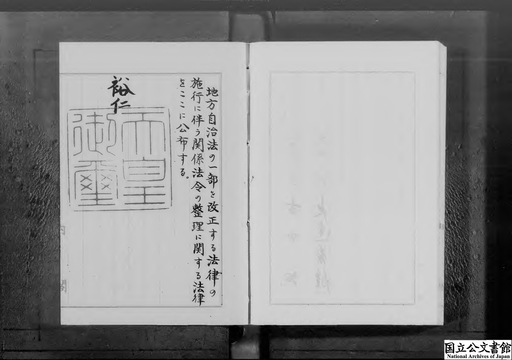 地方自治法の一部を改正する法律の
施行に伴う関係法令の整理に関する法律
をここに公布する。
裕仁
天皇
御璽
国立公文書館
National Archives of Japan